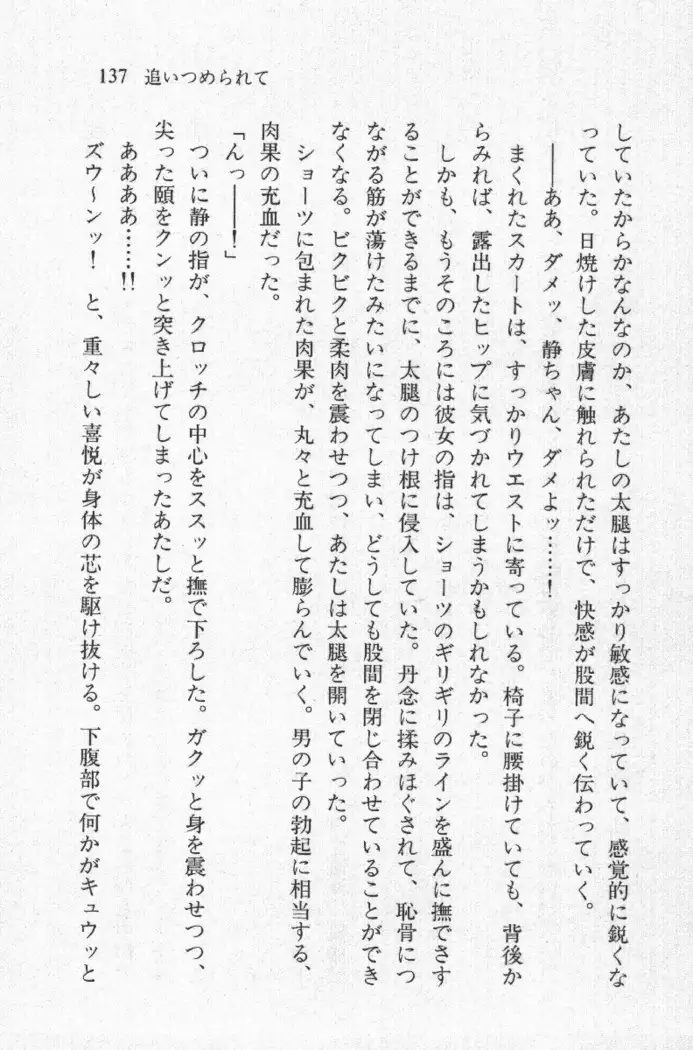 137 追いつめられて
していたからかなんなのか、あたしの太腿はすっかり敏感になっていて、感覚的に鋭くな
っていた。日焼けした皮膚に触れられただけで、快感が股間へ鋭く伝わっていく。
――ああ、ダメッ、静ちゃん、ダメよッ……！
まくれたスカートは、すっかりウエストに寄っている。椅子に腰掛けていても、背後か
らみれば、露出したヒップに気づかれてしまうかもしれなかった。
しかも、もうそのころには彼女の指は、ショーツのギリギリのラインを盛んに撫でさす
ることができるまでに、太腿のつけ根に侵入していた。丹念に揉みほぐされて、恥骨につ
ながる筋が蕩けたみたいになってしまい、どうしても股間を閉じ合わせていることができ
なくなる。ビクビクと柔肉を震わせつつ、あたしは太腿を開いていった。
ショーツに包まれた肉果が、丸々と充血して膨らんでいく。男の子の勃起に相当する、
肉果の充血だった。
「んっ――！」
ついに静の指が、クロッチの中心をススッと撫で下ろした。ガクッと身を震わせつつ、
尖った頤をクンッと突き上げてしまったあたしだ。
ああああ……!!
ズウ～ンッ！　と、重々しい喜悦が身体の芯を駆け抜ける。下腹部で何かがキュウッと